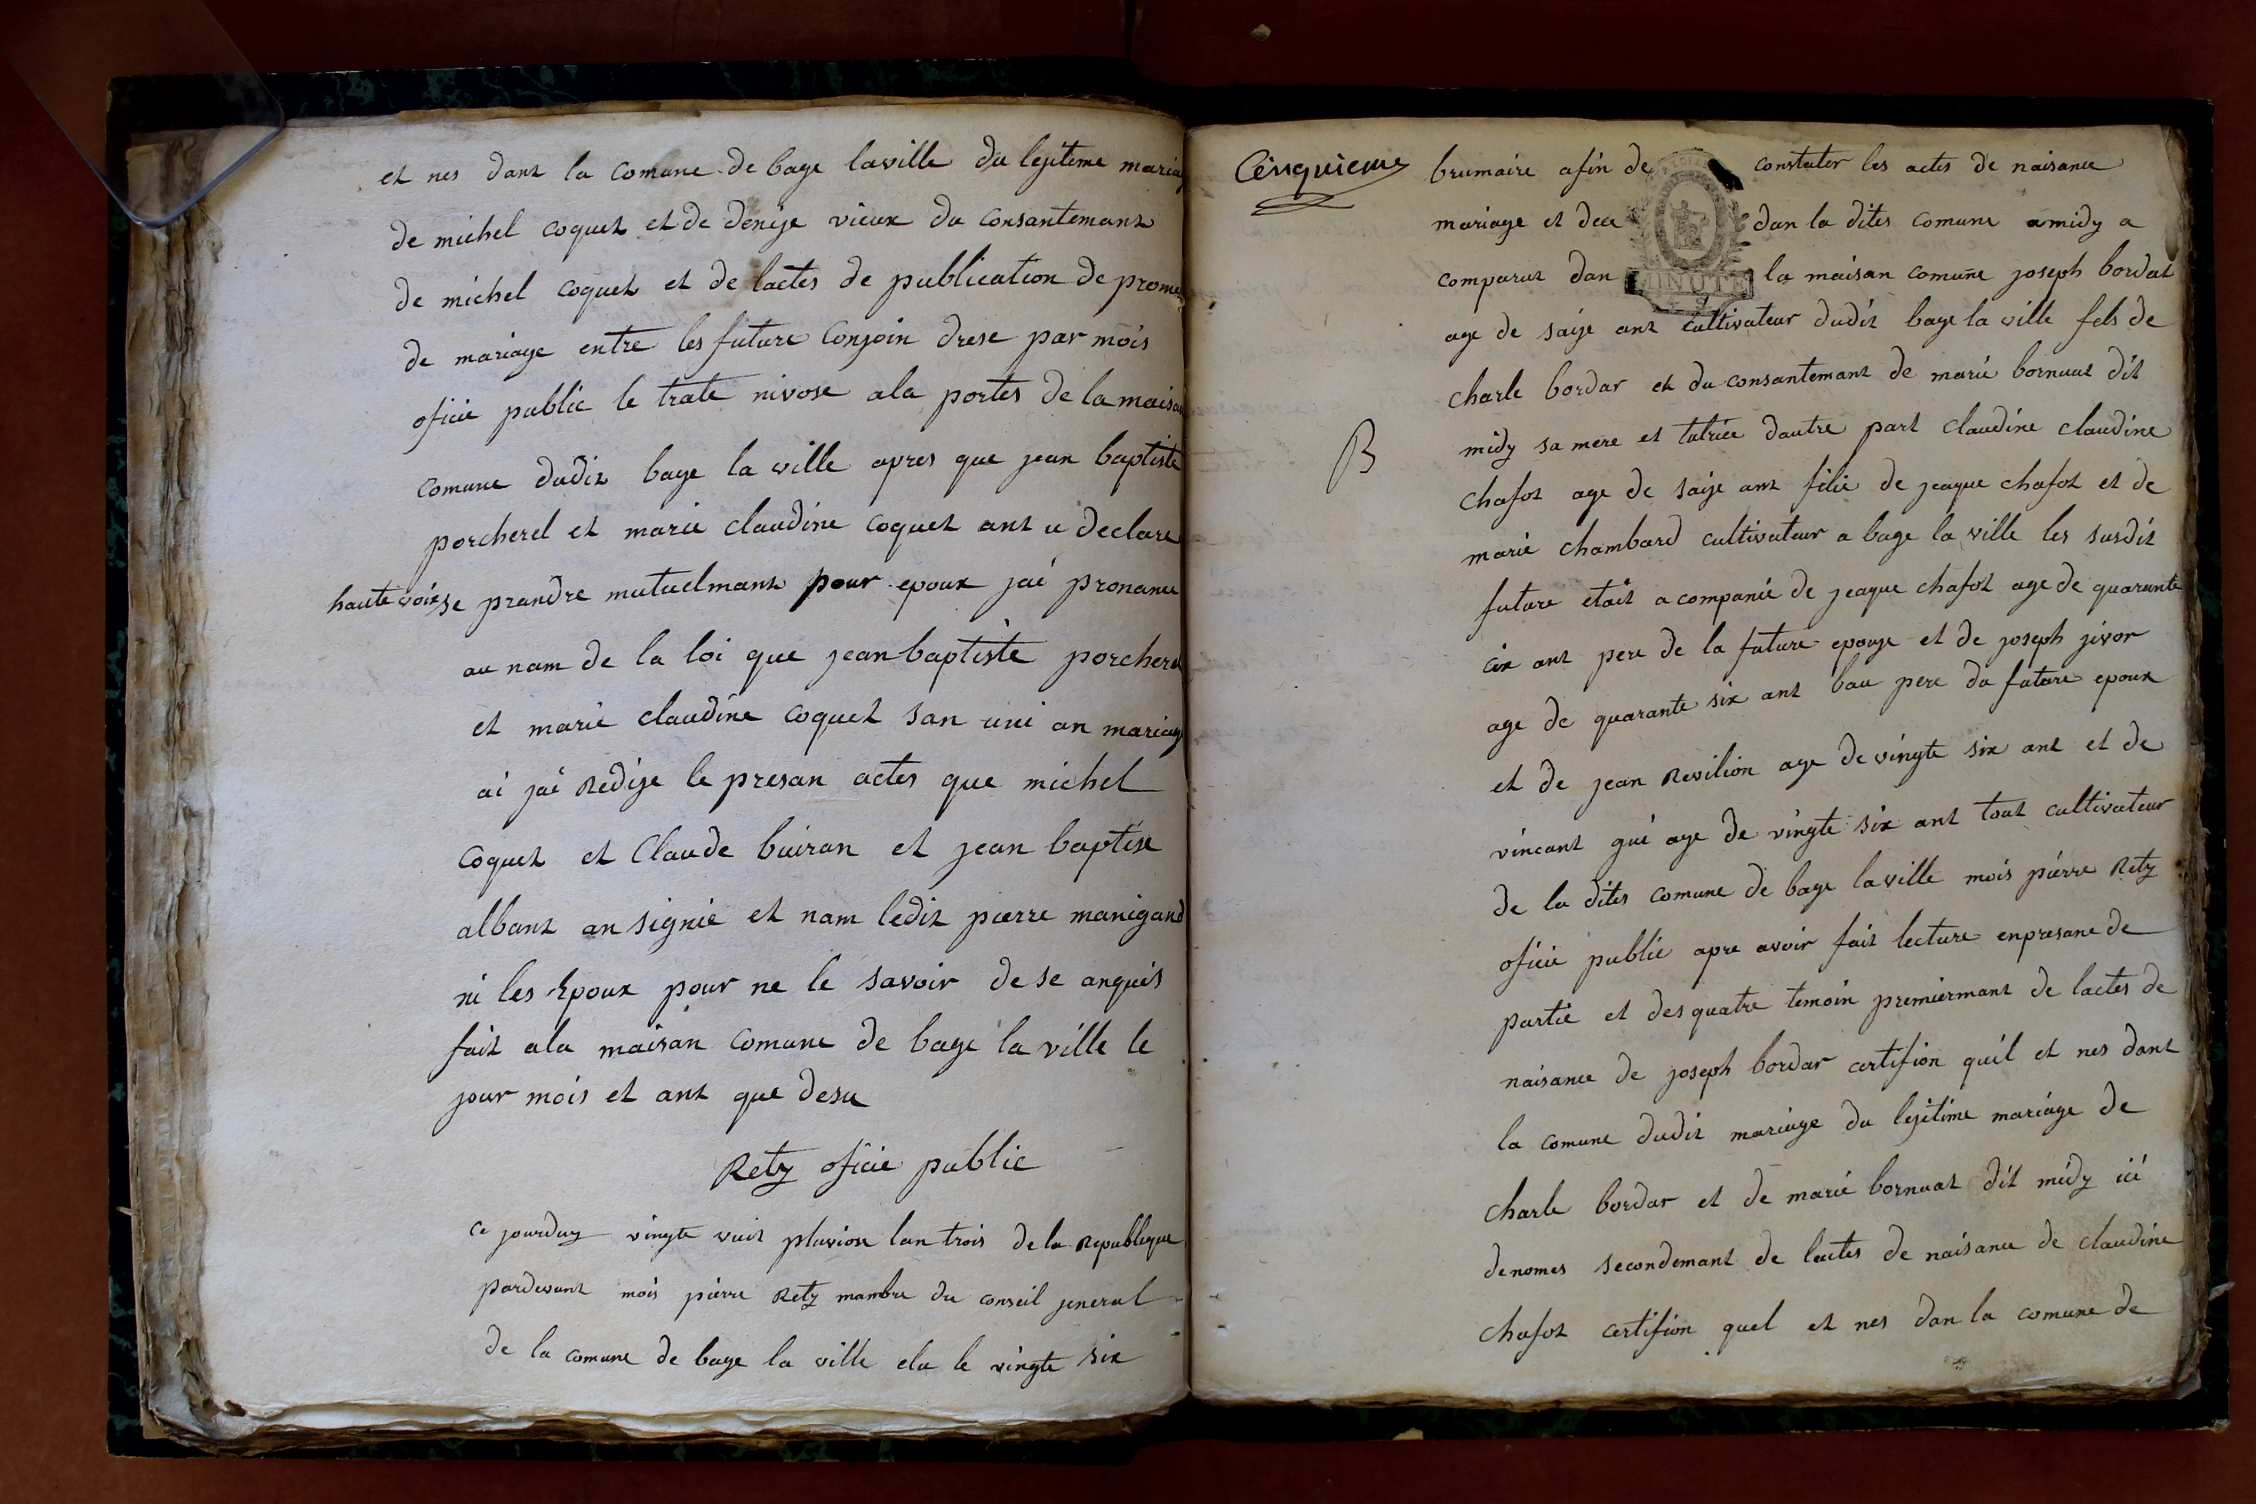 et nes dant la comune de bage laville du lejiteme mariag
de michel coquet et de denije vieux du consantemant
de michel coquet et de lactes de publication de prome
de mariage entre les future Conjoin drese par mois
oficie public le trate nivose ala portes de la maison
comune dudit bage la ville apres que jean baptiste
porcherel et marie claudine coquet ant u declare
haute voix se prandre mutuelmant pour epoux jai prononcee
au nam de la loi que jean baptiste porcherel
et marie claudine coquet san uni an mariag
ai jai Redige le presan actes que michel
coquet et Claude buiran et jean baptise
albant an signie et nam ledit pierre manigand
ni les Epoux pour ne le savoir de se anquis
fait ala maisan comune de bage la ville le
jour mois et ant que desu
Retz oficie public
ce jourduy vingte vuit pluviose lan trois de la Republique
pardevant mois pierre Retz mambre du conseil jeneral
de la comune de bage la ville elu le vingte six
Cinquieme
brumaire afin de constater les actes de naisance
mariage et dece dan la dites comune amidy a
comparut dan la maisan comune joseph bordat
MINUTE
age de saije ant cultivateur dudit bage la ville fils de
charle bordar et du consantemant de marie bornuat dit
midy sa mere et tutrice dautre part claudine claudine
B
chafot age de saije ant filie de jeaque chafot et de
marie chambard cultivateur a bage la ville les susdit
future etait acompanié de jeaque chafot age de quarante
cix ant pere de la future epouge et de joseph jivor
age de quarante six ant bau pere du future epoux
et de jean Revilion age de vingte six ant et de
vincant gui age de vingte six ant tout cultivateur
de la dites comune de bage laville mois pierre Retz
oficie public apre avoir fait lecture enpresance de
partie et des quatre temoin premiermant de lactes de
naisance de joseph bordar certifion quil et nes dant
la comune dudit mariage du lejitime mariage de
charle bordar et de marie bornuat dit midy ici
denomes secondemant de lactes de naisance de claudine
chafot certifion quel et nes dan la comune de